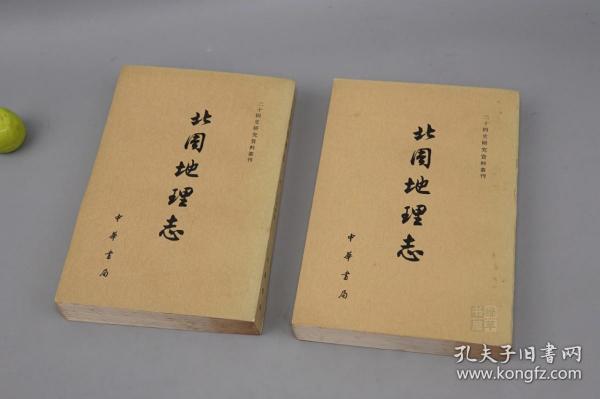 二十四史研究资料丛刊
北周地理志
中華書局
二十四史研究資料叢刊
北周地理志
中華書局
孔夫子旧书网
www.kongfz.com